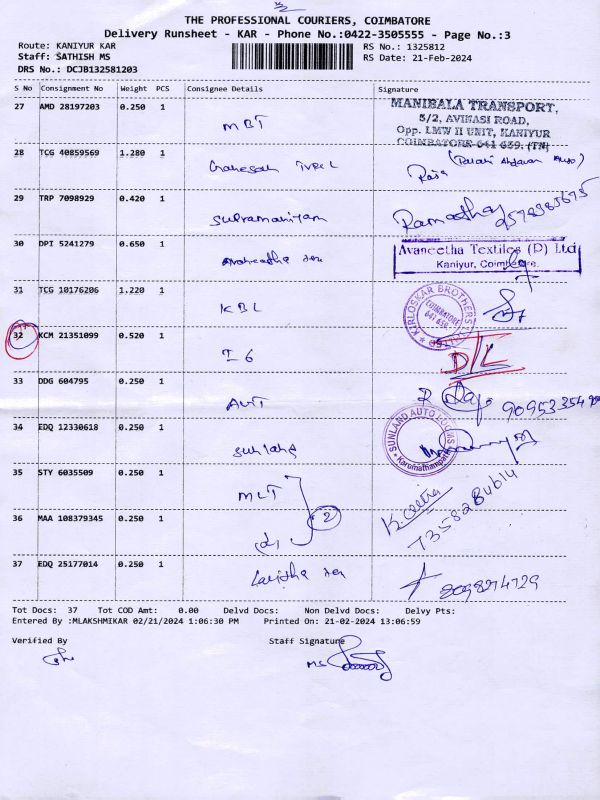 THE PROFESSIONAL COURIERS, COIMBATORE
Delivery Runsheet - KAR - Phone No.:0422-3505555 - Page No.:3
Route: KANIYUR KAR RS No.: 1325812
Staff: SATHISH MS RS Date: 21-Feb-2024
DRS No.: DCJB132581203
S No Consignment No Weight PCS Consignee Details Signature
27 AMD 28197203 0.250 1 MBT
MANIBALA TRANSPORT,
5/2, AVINASI ROAD,
Opp. LMW II UNIT, KANIYUR
COIMBATORE-641 659. (TN)
28 TCG 40859569 1.280 1 Raja
29 TRP 7098929 0.420 1 Subramaniyam
30 DPI 5241279 0.650 1
Avaneetha Textiles (P) Ltd
Kaniyur, Coimbatore.
31 TCG 10176206 1.220 1 KBL
KIRLOSKAR BROTHERS LTD
COIMBATORE
641 659
32 KCM 21351099 0.520 1 I6 D/L
33 DDG 604795 0.250 1
34 EDQ 12330618 0.250 1
SUNLAND AUTO LOOMS
Karumathampatti
35 STY 6035509 0.250 1 MLT
2
36 MAA 108379345 0.250 1 d,
37 EDQ 25177014 0.250 1
Tot Docs: 37 Tot COD Amt: 0.00 Delvd Docs: Non Delvd Docs: Delvy Pts:
Entered By :MLAKSHMIKAR 02/21/2024 1:06:30 PM Printed On: 21-02-2024 13:06:59
Verified By Staff Signature